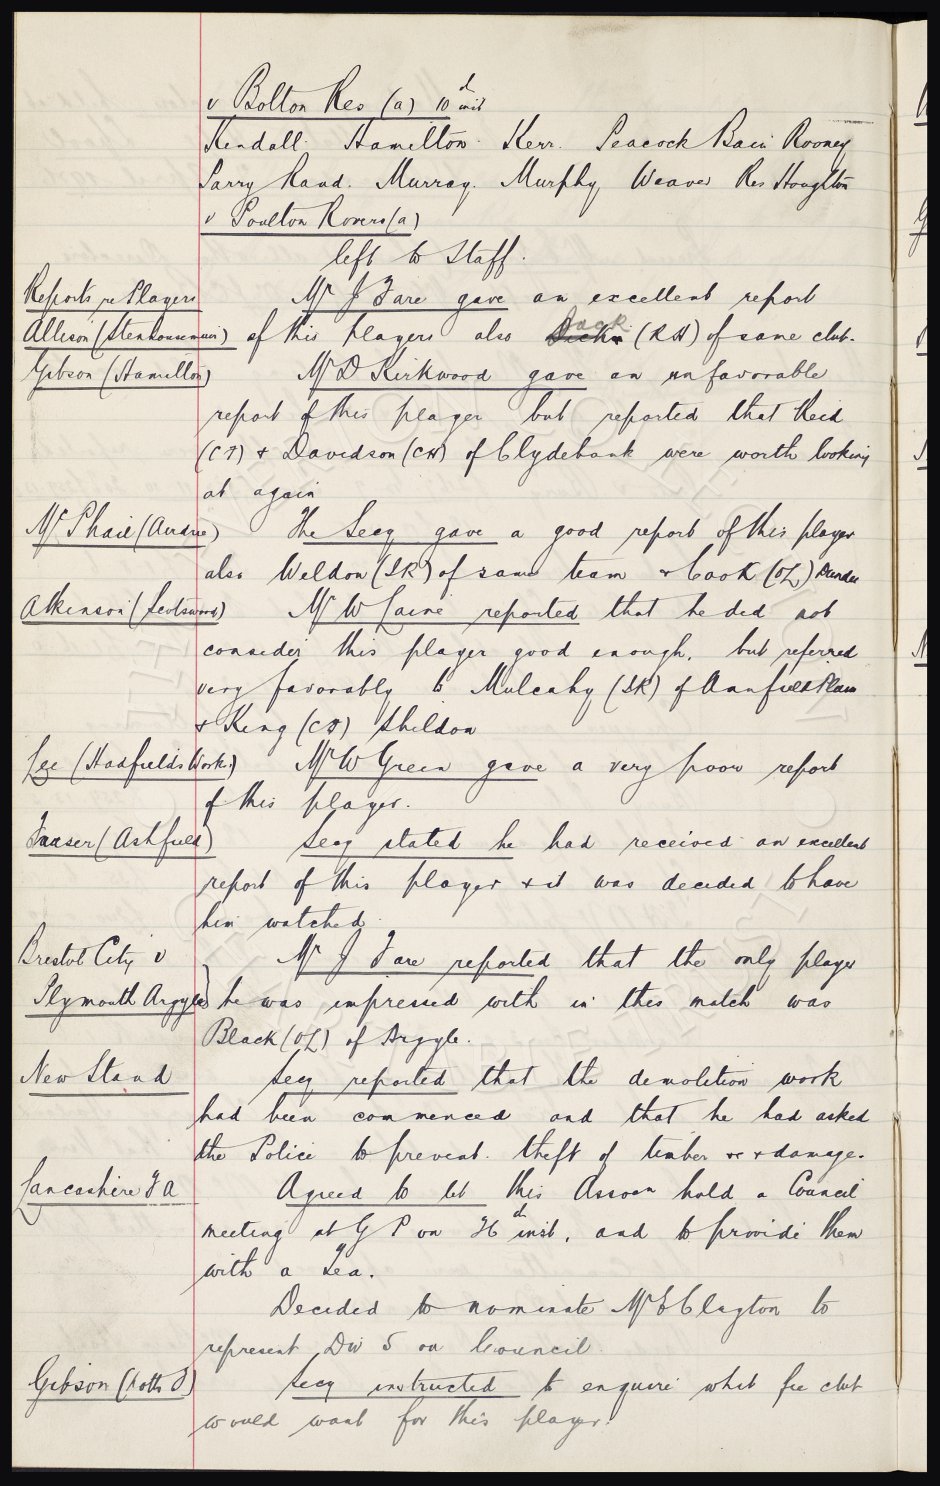 v Bolton Res (a) 10th inst
Kendall. Hamilton. Kerr. Peacock Bain Rooney
Parry Rand. Murray. Murphy Weaver Res Houghton
v Poulton Rovers (a)
left to Staff.
Reports re Players Mr J Fare gave an excellent report
Allison (Stenhousemuir) of this players also Jack (RH) of same club.
Gibson (Hamilton) Mr D Kirkwood gave an unfavorable
report of this player but reported that Reid
(CF) & Davidson (CH) of Clydebank were worth looking
at again
McPhail (Airdrie) The Secy gave a good report of this player
also Weldon (IR) of same team & Cook (OL) Dundee
Atkinson (Scotswood) Mr W Caine reported that he did not
consider this player good enough, but referred
very favorably to Mulcahy (IR) of Annfield Plain
& King (CF) Shildon
Lee (Hadfields Works) Mr W Green gave a very poor report
of this player.
Fraser (Ashfield) Secy stated he had received an excellent
report of this player & it was decided to have
him watched
Bristol City v Mr J Fare reported that the only player
Plymouth Argyle) he was impressed with in this match was
Black (OL) of Argyle.
New Stand Secy reported that the demolition work
had been commenced and that he had asked
the Police to prevent theft of timber &c & damage.
Lancashire F A Agreed to let this Assocn hold a Council
meeting at G P on 26th inst, and to provide them
with a Tea.
Decided to nominate Mr E Clayton to
represent Div 5 on Council.
Gibson (Notts F) Secy instructed to enquire what fee club
would want for this player.